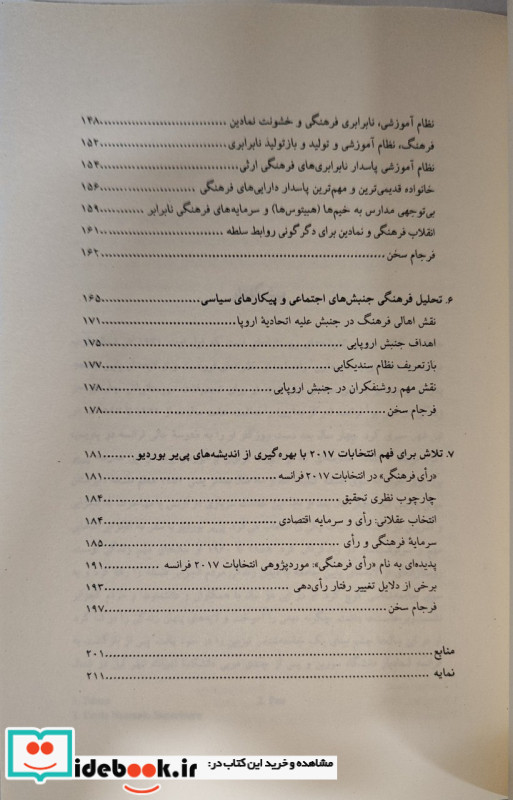 نظام آموزشی، نابرابری فرهنگی و خشونت نمادین ........ ۱۴۸
فرهنگ، نظام آموزشی و تولید و بازتولید نابرابری ........ ۱۵۲
نظام آموزشی پاسدار نابرابری‌های فرهنگی ارثی ........ ۱۵۴
خانواده قدیمی‌ترین و مهم‌ترین پاسدار دارایی‌های فرهنگی ........ ۱۵۶
بی‌توجهی مدارس به خیم‌ها (هبیتوس‌ها) و سرمایه‌های فرهنگی نابرابر ........ ۱۵۹
انقلاب فرهنگی و نمادین برای دگرگونی روابط سلطه ........ ۱۶۱
فرجام سخن ........ ۱۶۲
۶. تحلیل فرهنگی جنبش‌های اجتماعی و پیکارهای سیاسی ........ ۱۶۵
نقش اهالی فرهنگ در جنبش علیه اتحادیهٔ اروپا ........ ۱۷۱
اهداف جنبش اروپایی ........ ۱۷۵
بازتعریف نظام سندیکایی ........ ۱۷۷
نقش مهم روشنفکران در جنبش اروپایی ........ ۱۷۸
فرجام سخن ........ ۱۷۸
۷. تلاش برای فهم انتخابات ۲۰۱۷ با بهره‌گیری از اندیشه‌های پی‌یر بوردیو ........ ۱۸۱
«رأی فرهنگی» در انتخابات ۲۰۱۷ فرانسه ........ ۱۸۱
چارچوب نظری تحقیق ........ ۱۸۴
انتخاب عقلانی: رأی و سرمایه اقتصادی ........ ۱۸۴
سرمایهٔ فرهنگی و رأی ........ ۱۸۵
پدیده‌ای به نام «رأی فرهنگی»: موردپژوهی انتخابات ۲۰۱۷ فرانسه ........ ۱۹۱
برخی از دلایل تغییر رفتار رأی‌دهی ........ ۱۹۳
فرجام سخن ........ ۱۹۷
منابع ........ ۲۰۱
نمایه ........ ۲۱۱
مشاهده و خرید این کتاب در:
idebook.ir